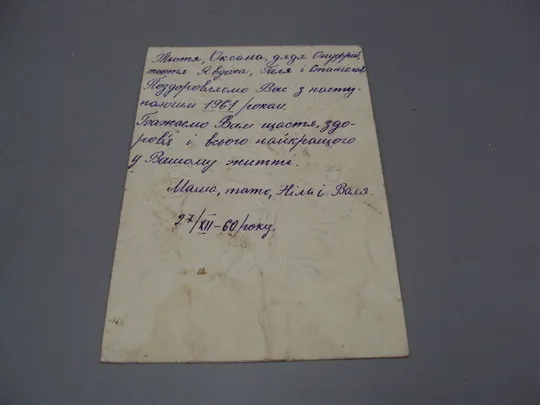 Тьотя, Оксана, дядя Онуфрій,
тьотя Явдоха, Галя і Станіслав
Поздоровляємо Вас з насту-
паючим 1961 роком.
Бажаємо Вам щастя, здо-
ров'я і всього найкращого
у Вашому житті.
Мама, тато, Ніла і Валя.
27/XII-60 року.